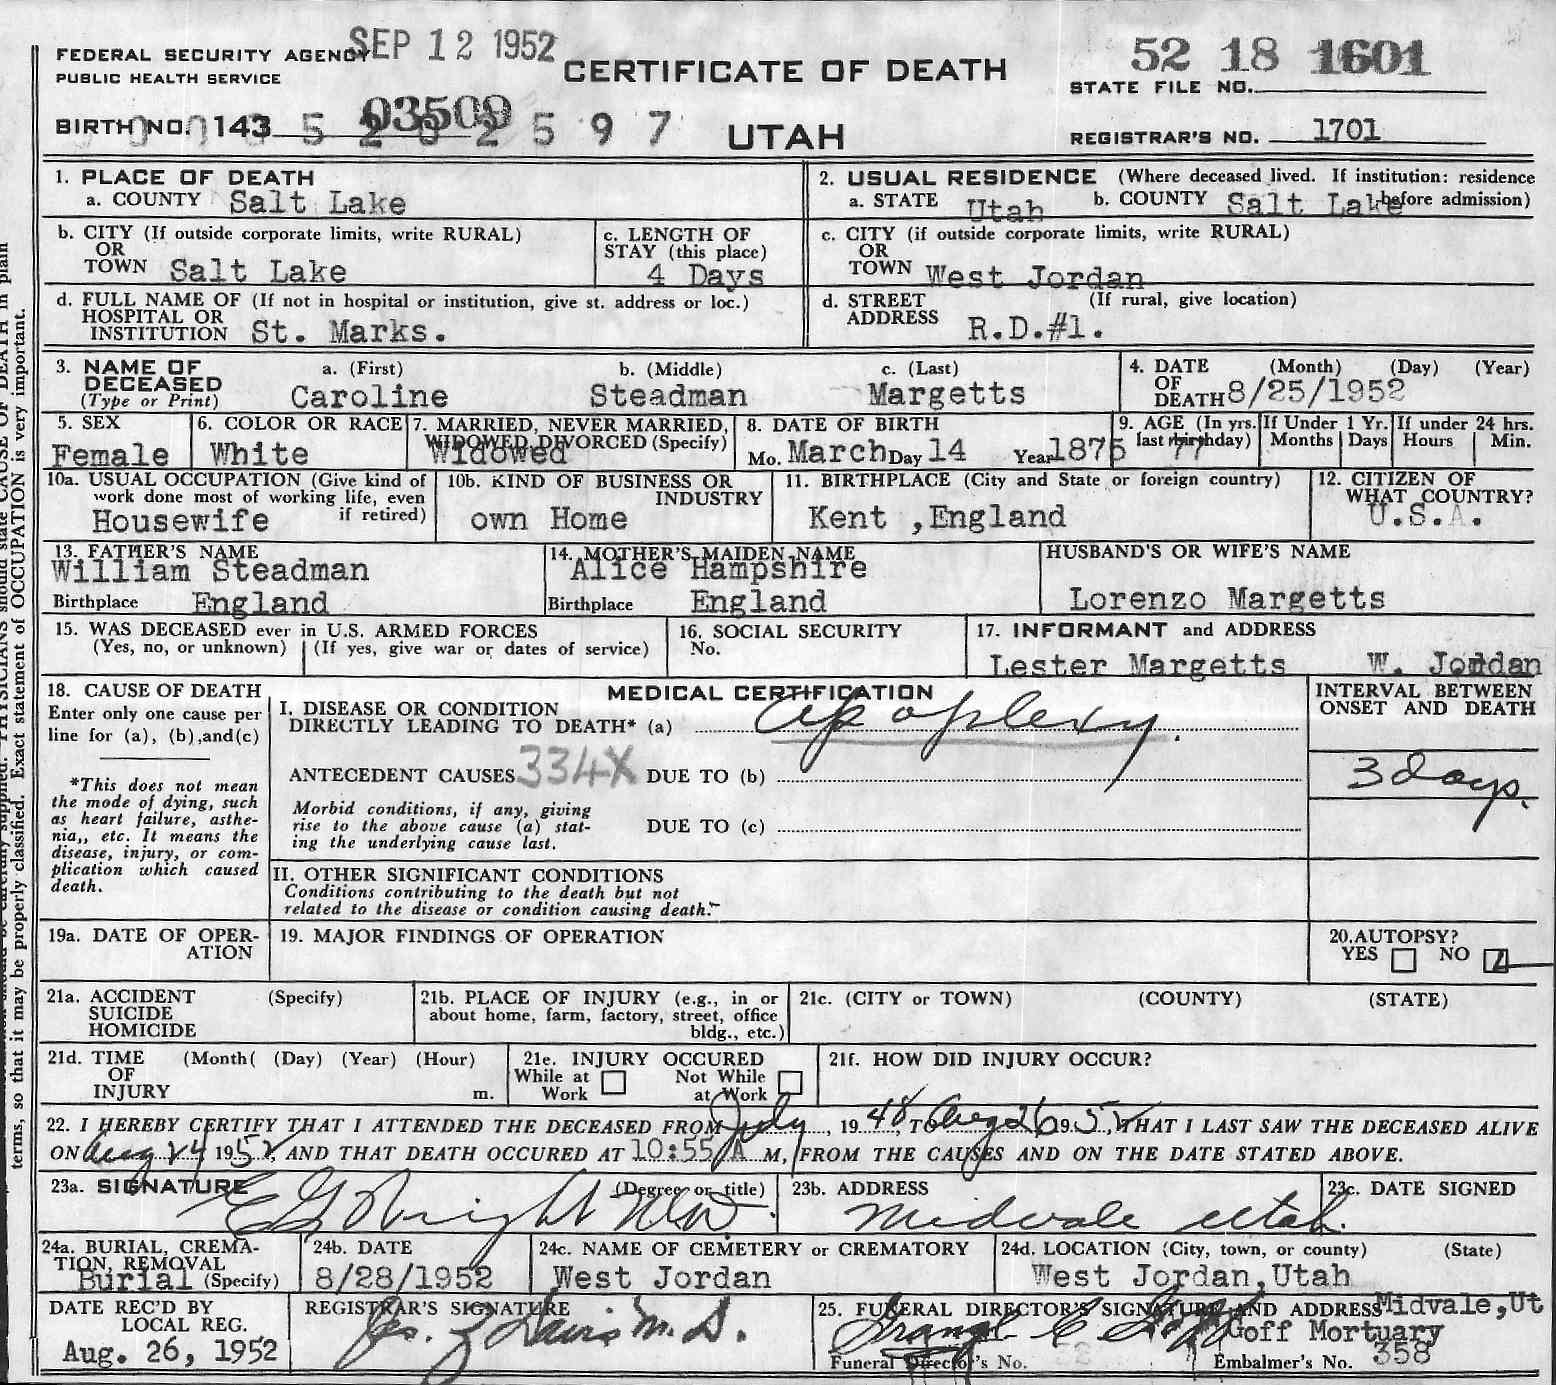 FEDERAL SECURITY AGENCY SEP 12 1952
PUBLIC HEALTH SERVICE
CERTIFICATE OF DEATH
52 18 1601
STATE FILE NO.
BIRTH NO. 143 03509
UTAH
REGISTRAR'S NO. 1701
1. PLACE OF DEATH
a. COUNTY Salt Lake
2. USUAL RESIDENCE (Where deceased lived. If institution: residence before admission)
a. STATE Utah b. COUNTY Salt Lake
b. CITY (If outside corporate limits, write RURAL)
OR
TOWN Salt Lake
c. LENGTH OF
STAY (this place)
4 Days
c. CITY (if outside corporate limits, write RURAL)
OR
TOWN West Jordan
d. FULL NAME OF (If not in hospital or institution, give st. address or loc.)
HOSPITAL OR
INSTITUTION St. Marks.
d. STREET (If rural, give location)
ADDRESS R.D.#1.
3. NAME OF
DECEASED
(Type or Print)
a. (First) b. (Middle) c. (Last)
Caroline Steadman Margetts
4. DATE (Month) (Day) (Year)
OF
DEATH 8/25/1952
5. SEX
Female
6. COLOR OR RACE
White
7. MARRIED, NEVER MARRIED,
WIDOWED, DIVORCED (Specify)
Widowed
8. DATE OF BIRTH
Mo. March Day 14 Year 1875
9. AGE (In yrs. last birthday) 77
If Under 1 Yr. Months Days
If under 24 hrs. Hours Min.
10a. USUAL OCCUPATION (Give kind of
work done most of working life, even
if retired)
Housewife
10b. KIND OF BUSINESS OR
INDUSTRY
own Home
11. BIRTHPLACE (City and State or foreign country)
Kent ,England
12. CITIZEN OF
WHAT COUNTRY?
U.S.A.
13. FATHER'S NAME
William Steadman
Birthplace England
14. MOTHER'S MAIDEN NAME
Alice Hampshire
Birthplace England
HUSBAND'S OR WIFE'S NAME
Lorenzo Margetts
15. WAS DECEASED ever in U.S. ARMED FORCES
(Yes, no, or unknown) (If yes, give war or dates of service)
16. SOCIAL SECURITY
No.
17. INFORMANT and ADDRESS
Lester Margetts W. Jordan
18. CAUSE OF DEATH
Enter only one cause per
line for (a), (b),and(c)
*This does not mean
the mode of dying, such
as heart failure, asthe-
nia,, etc. It means the
disease, injury, or com-
plication which caused
death.
MEDICAL CERTIFICATION
I. DISEASE OR CONDITION
DIRECTLY LEADING TO DEATH* (a) Apoplexy.
ANTECEDENT CAUSES 334X DUE TO (b)
Morbid conditions, if any, giving
rise to the above cause (a) stat-
ing the underlying cause last.
DUE TO (c)
INTERVAL BETWEEN
ONSET AND DEATH
3 days.
II. OTHER SIGNIFICANT CONDITIONS
Conditions contributing to the death but not
related to the disease or condition causing death.
19a. DATE OF OPER-
ATION
19. MAJOR FINDINGS OF OPERATION
20.AUTOPSY?
YES NO
21a. ACCIDENT (Specify)
SUICIDE
HOMICIDE
21b. PLACE OF INJURY (e.g., in or
about home, farm, factory, street, office
bldg., etc.)
21c. (CITY or TOWN) (COUNTY) (STATE)
21d. TIME (Month( (Day) (Year) (Hour)
OF
INJURY m.
21e. INJURY OCCURED
While at Work Not While at Work
21f. HOW DID INJURY OCCUR?
22. I HEREBY CERTIFY THAT I ATTENDED THE DECEASED FROM July, 1948, TO Aug 26 1952, THAT I LAST SAW THE DECEASED ALIVE
ON Aug 24 1952, AND THAT DEATH OCCURED AT 10:55 A M, FROM THE CAUSES AND ON THE DATE STATED ABOVE.
23a. SIGNATURE (Degree or title)
E G Wright MD.
23b. ADDRESS
Midvale Utah.
23c. DATE SIGNED
24a. BURIAL, CREMA-
TION, REMOVAL
Burial (Specify)
24b. DATE
8/28/1952
24c. NAME OF CEMETERY or CREMATORY
West Jordan
24d. LOCATION (City, town, or county) (State)
West Jordan,Utah
DATE REC'D BY
LOCAL REG.
Aug. 26, 1952
REGISTRAR'S SIGNATURE
Davis M.D.
25. FUNERAL DIRECTOR'S SIGNATURE AND ADDRESS Midvale,Ut
Goff Mortuary
Funeral Director's No. Embalmer's No. 358
terms, so that it may be properly classified. Exact statement of OCCUPATION is very important.